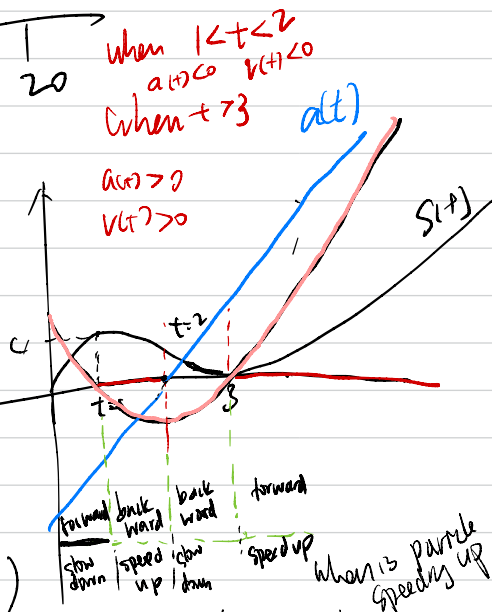 20
when 1<t<2
a(t)<0 v(t)<0
when t>3
a(t)
a(t)>0
v(t)>0
S(t)
t=2
c
t=
3
forward back ward back word forward
slow down speed up slow down speed up
when is particle
speeding up
)